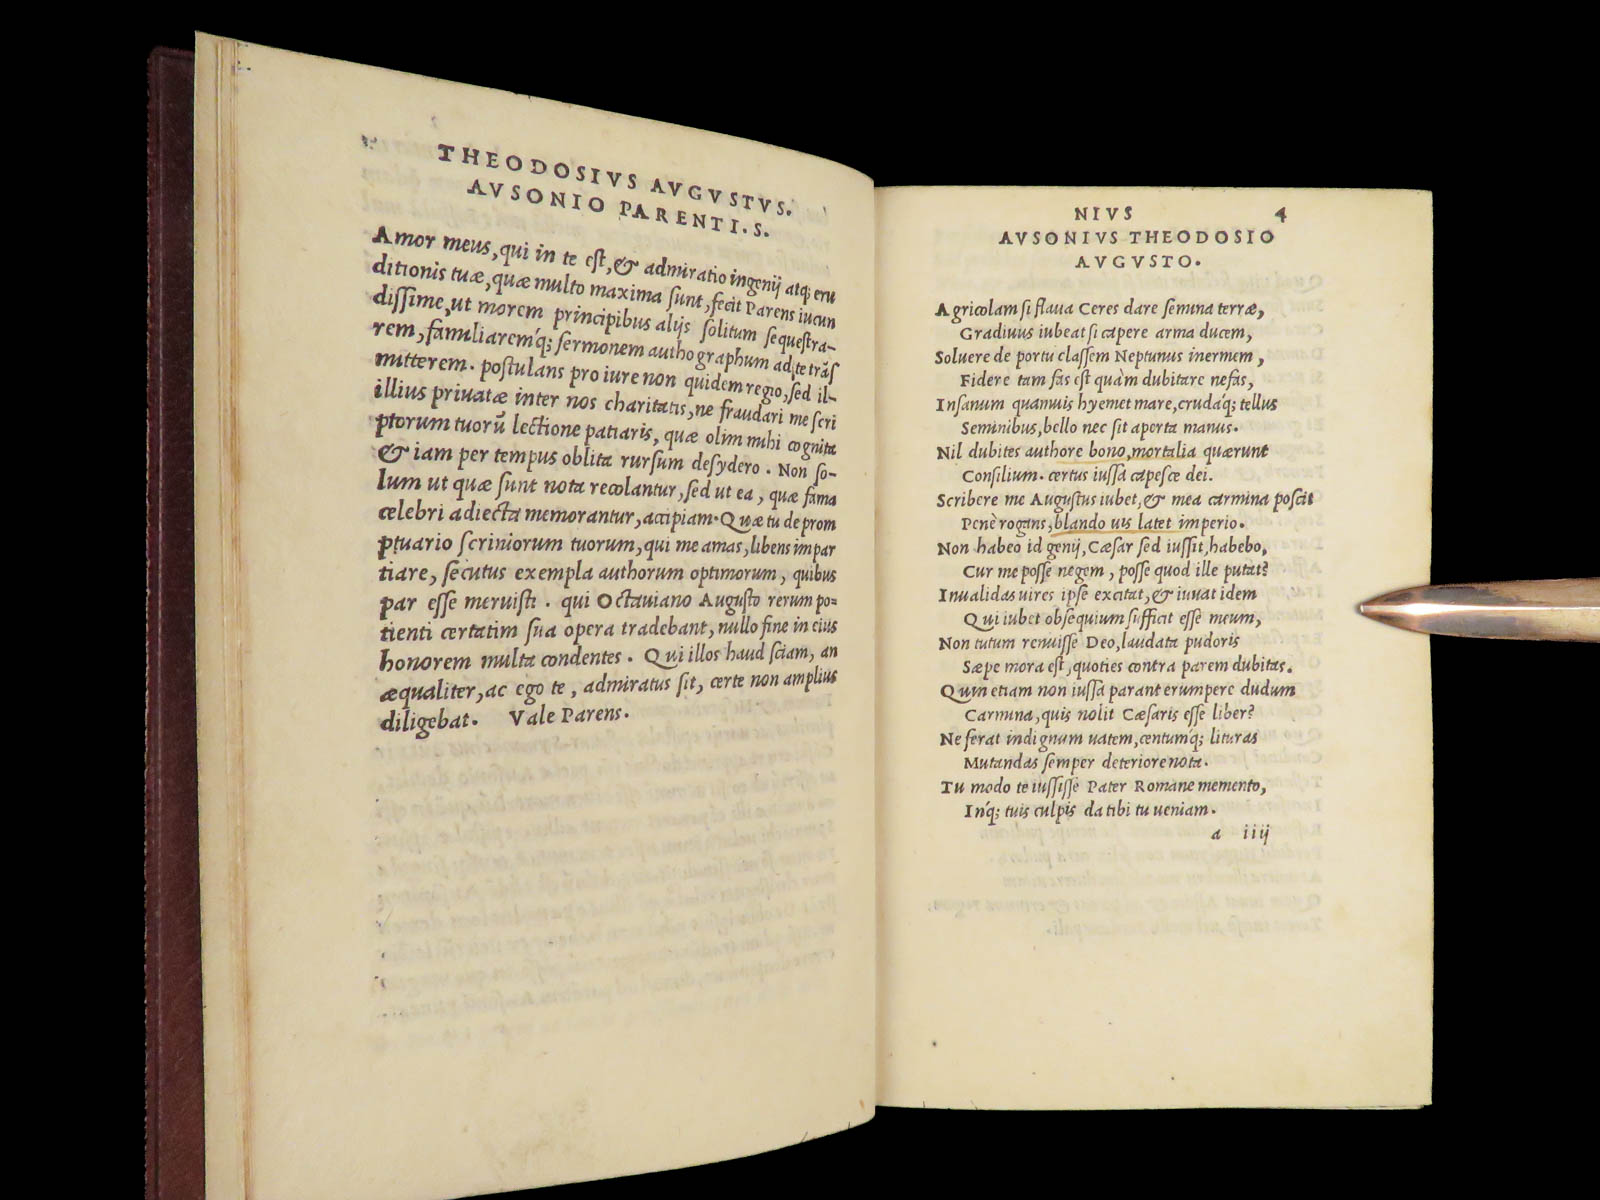 THEODOSIVS AVGVSTVS.
AVSONIO PARENTI.S.
Amor meus,qui in te est,& admiratio ingenij atq; eru
ditionis tuæ, quæ multo maxima sunt, fecit Parens iucun
dissime,ut morem principibus alijs solitum sequestra-
rem, familiaremq́; sermonem authographum ad te trãs
mitterem. postulans pro iure non quidem regio, sed il-
illius priuatæ inter nos charitatis,ne fraudari me scri
ptorum tuorũ lectione patiaris, quæ olim mihi cognita
& iam per tempus oblita rursum desydero. Non so-
lum ut quæ sunt nota recolantur, sed ut ea, quæ fama
celebri adiecta memorantur, accipiam. Quæ tu de prom
ptuario scriniorum tuorum, qui me amas, libens impar
tiare, secutus exempla authorum optimorum, quibus
par esse meruisti. qui Octauiano Augusto rerum po=
tienti certatim sua opera tradebant, nullo fine in eius
honorem multa condentes. Qui illos haud sciam, an
æqualiter, ac ego te, admiratus sit, certe non amplius
diligebat. Vale Parens.
NIVS 4
AVSONIVS THEODOSIO
AVGVSTO.
Agricolam si flaua Ceres dare semina terræ,
Gradiuus iubeat si capere arma ducem,
Soluere de portu classem Neptunus inermem,
Fidere tam fas est quàm dubitare nefas,
Insanum quamuis hyemet mare, crudaq́; tellus
Seminibus, bello nec sit aperta manus.
Nil dubites authore bono, mortalia quærunt
Consilium. certus iussa capesce dei.
Scribere me Augustus iubet, & mea carmina poscit
Penè rogans, blando uis latet imperio.
Non habeo id genij, Cæsar sed iussit, habebo,
Cur me posse negem, posse quod ille putat?
Inualidas uires ipse excitat, & iuuat idem
Qui iubet obsequium sufficit esse meum,
Non tutum renuisse Deo, laudata pudoris
Sæpe mora est, quoties contra parem dubitas.
Quin etiam non iussa parant erumpere dudum
Carmina, quis nolit Cæsaris esse liber?
Ne ferat indignum uatem, centumq́; lituras
Mutandas semper deteriore nota.
Tu modo te iussisse Pater Romane memento,
Inq́; tuis culpis da tibi tu ueniam.
a iiij